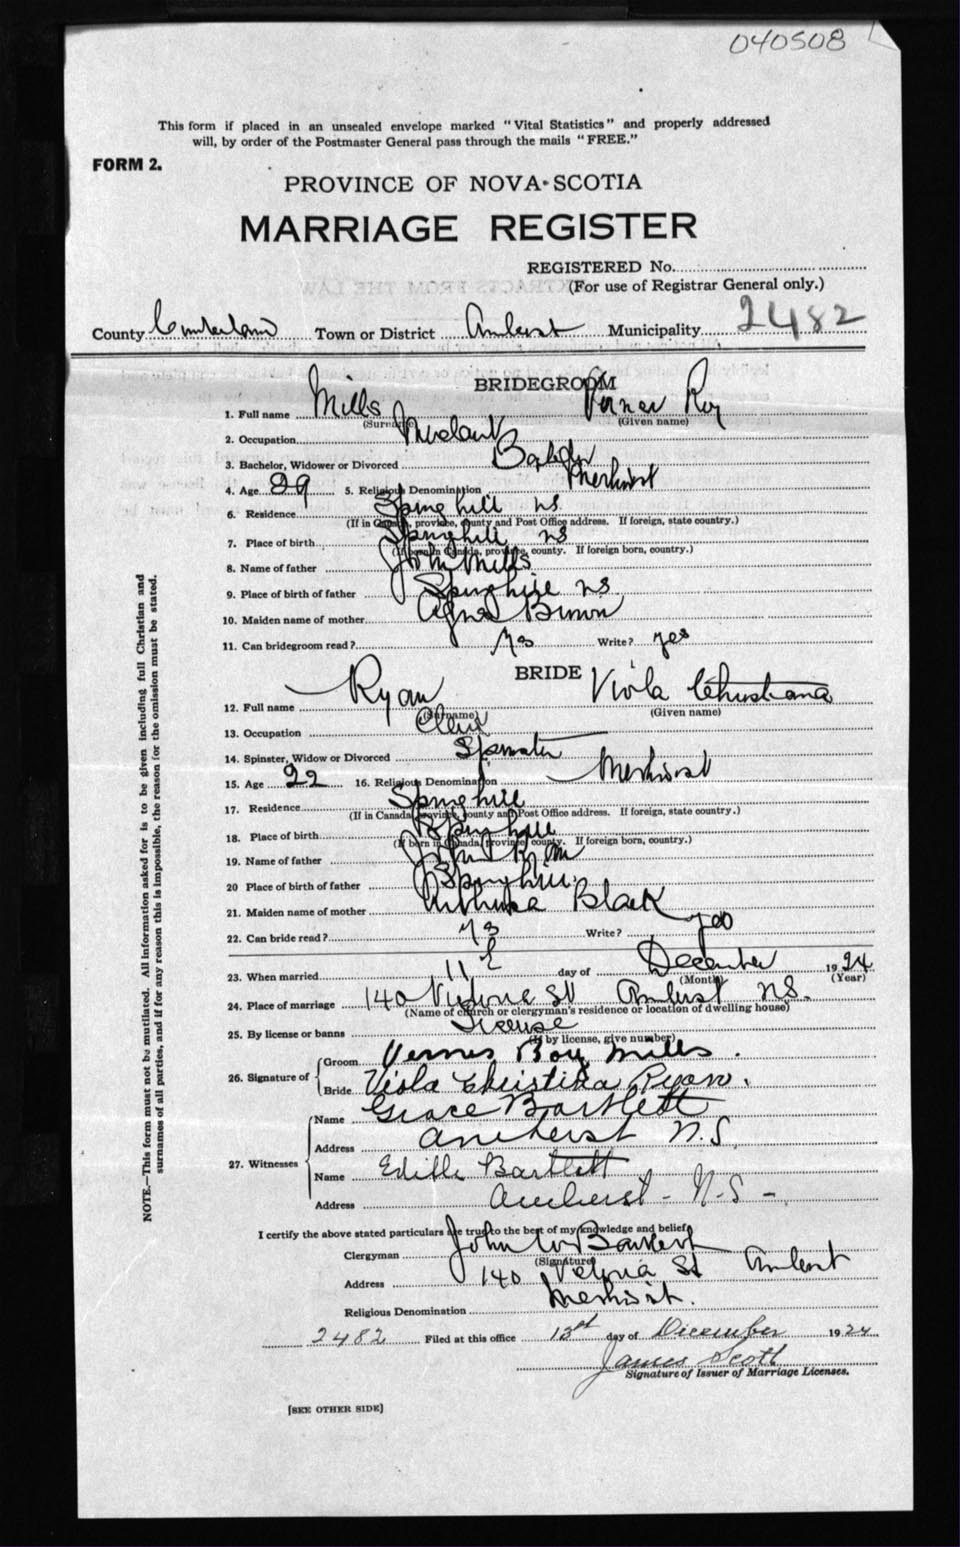 040508
This form if placed in an unsealed envelope marked "Vital Statistics" and properly addressed
will, by order of the Postmaster General pass through the mails "FREE."
FORM 2.
PROVINCE OF NOVA SCOTIA
MARRIAGE REGISTER
REGISTERED No.
(For use of Registrar General only.)
County Cumberland Town or District Amherst Municipality 2482
BRIDEGROOM
1. Full name Mills Roy
(Surname) (Given name)
2. Occupation
3. Bachelor, Widower or Divorced
4. Age 29 5. Religious Denomination Methodist
6. Residence Springhill NS
(If in Canada, province, county and Post Office address. If foreign, state country.)
7. Place of birth Springhill NS
(If born in Canada, province, county. If foreign born, country.)
8. Name of father John Mills
9. Place of birth of father Springhill NS
10. Maiden name of mother Agnes
11. Can bridegroom read? Yes Write? yes
BRIDE
12. Full name Ryan Viola
(Surname) (Given name)
13. Occupation Clerk
14. Spinster, Widow or Divorced Spinster
15. Age 22 16. Religious Denomination Methodist
17. Residence Springhill
(If in Canada, province, county and Post Office address. If foreign, state country.)
18. Place of birth Springhill
(If born in Canada, province, county. If foreign born, country.)
19. Name of father John Ryan
20 Place of birth of father Springhill
21. Maiden name of mother Black
22. Can bride read? Yes Write? yes
23. When married 11th day of December 1924
(Month) (Year)
24. Place of marriage 140 Victoria St Amherst NS.
(Name of church or clergyman's residence or location of dwelling house)
25. By license or banns License
(If by license, give number)
26. Signature of
Groom Roy Mills.
Bride Viola Christina Ryan.
27. Witnesses
Name Grace Bartlett
Address Amherst N.S.
Name Edith Bartlett
Address Amherst - N-S -
I certify the above stated particulars are true to the best of my knowledge and belief,
Clergyman John W
(Signature)
Address 140 Victoria St Amherst
Religious Denomination Methodist.
2482 Filed at this office 13th day of December 1924
James Scott
Signature of Issuer of Marriage Licenses.
[SEE OTHER SIDE]
NOTE.—This form must not be mutilated. All information asked for is to be given including full Christian and
surnames of all parties, and if for any reason this is impossible, the reason for the omission must be stated.